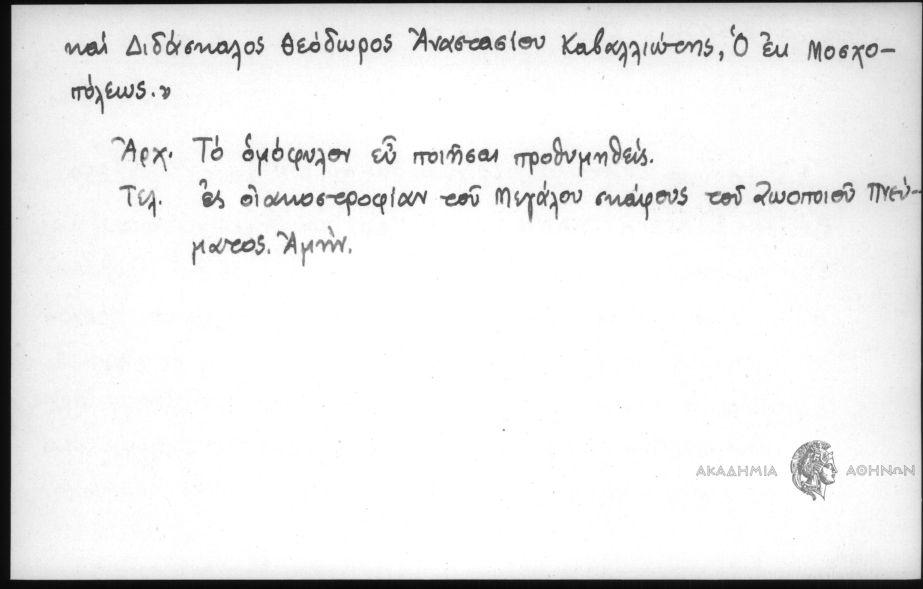 καὶ Διδάσκαλος Θεόδωρος Ἀναστασίου Καβαλλιώτης, Ὁ ἐκ Μοσχο-
πόλεως.»
Ἀρχ. Τὸ ὁμόφυλον εὖ ποιῆσαι προθυμηθείς.
Τελ. ἐς οἰακοστροφίαν τοῦ Μεγάλου σκάφους τοῦ Ζωοποιοῦ Πνεύ-
ματος. Ἀμήν.
ΑΚΑΔΗΜΙΑ ΑΘΗΝΩΝ